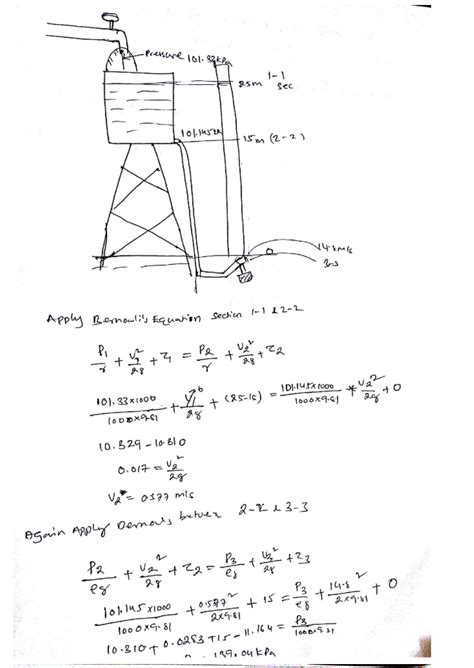 Pressure 101.33kPa
25m 1-1 Sec
101.145
15m (2-2)
14.8m/s
3-3
Apply Bernoulli's Equation section 1-1 & 2-2
P1/γ + V1²/2g + Z1 = P2/γ + V2²/2g + Z2
101.33×1000/1000×9.81 + V1²/2g + (25-15) = 101.145×1000/1000×9.81 + V2²/2g + 0
10.329-10.310
0.017 = V2²/2g
V2 = 0.577 m/s
Again Apply between 2-2 & 3-3
P2/eg + V2²/2g + Z2 = P3/eg + V3²/2g + Z3
101.145×1000/1000×9.81 + 0.577²/2×9.81 + 15 = P3/eg + 14.8²/2×9.81 + 0
10.310 + 0.0283 + 15 - 11.164 = P3/1000×9.81
139.04 kPa